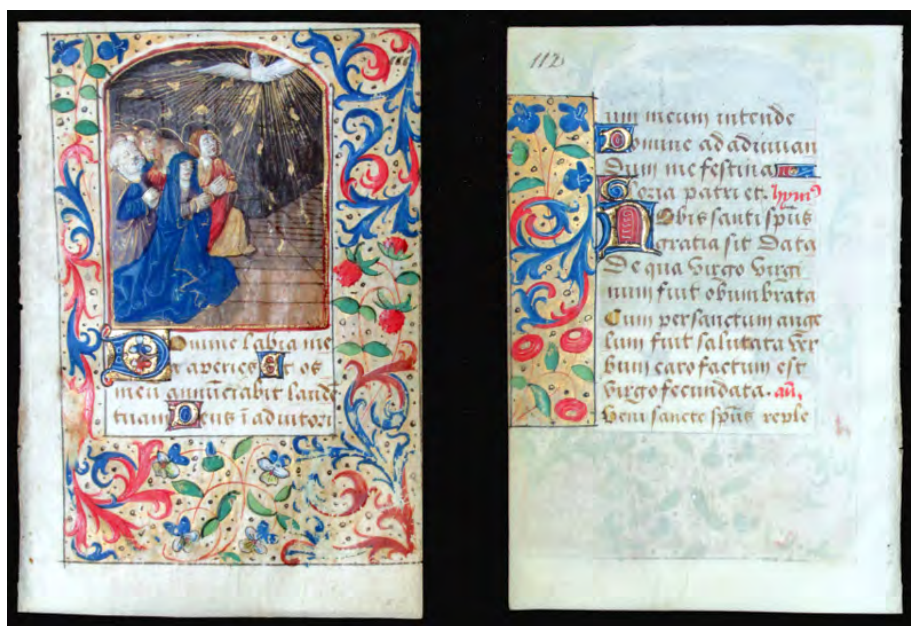 Domine labia me
a aperies Et os
meu annuciabit laude
tuam Deus i adiutori
112
um meum intende
Domine ad adiuvan
dum me festina
Gloria patri et. hym⁹
Nobis santi sp̄us
gratia sit data
De qua virgo virgi
num fuit obumbrata
Cum per sanctum ange
lum fuit salutata ver
bum caro factum est
virgo fecundata. an̄,
Veni sancte sp̄us reple